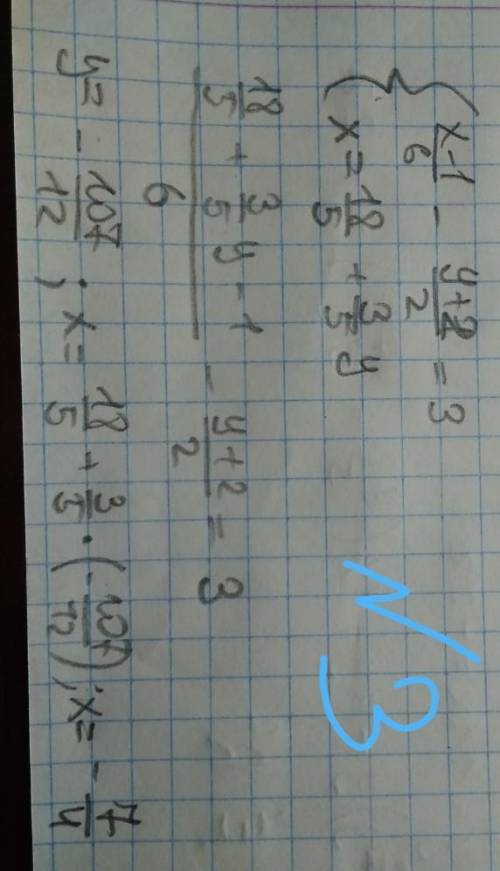 N 3
{ (x-1)/6 - (y+2)/2 = 3
{ x = 18/5 + 3/5 y
(18/5 + 3/5 y - 1)/6 - (y+2)/2 = 3
y = - 107/12 ; x = 18/5 + 3/5 · (- 107/12) ; x = - 7/4